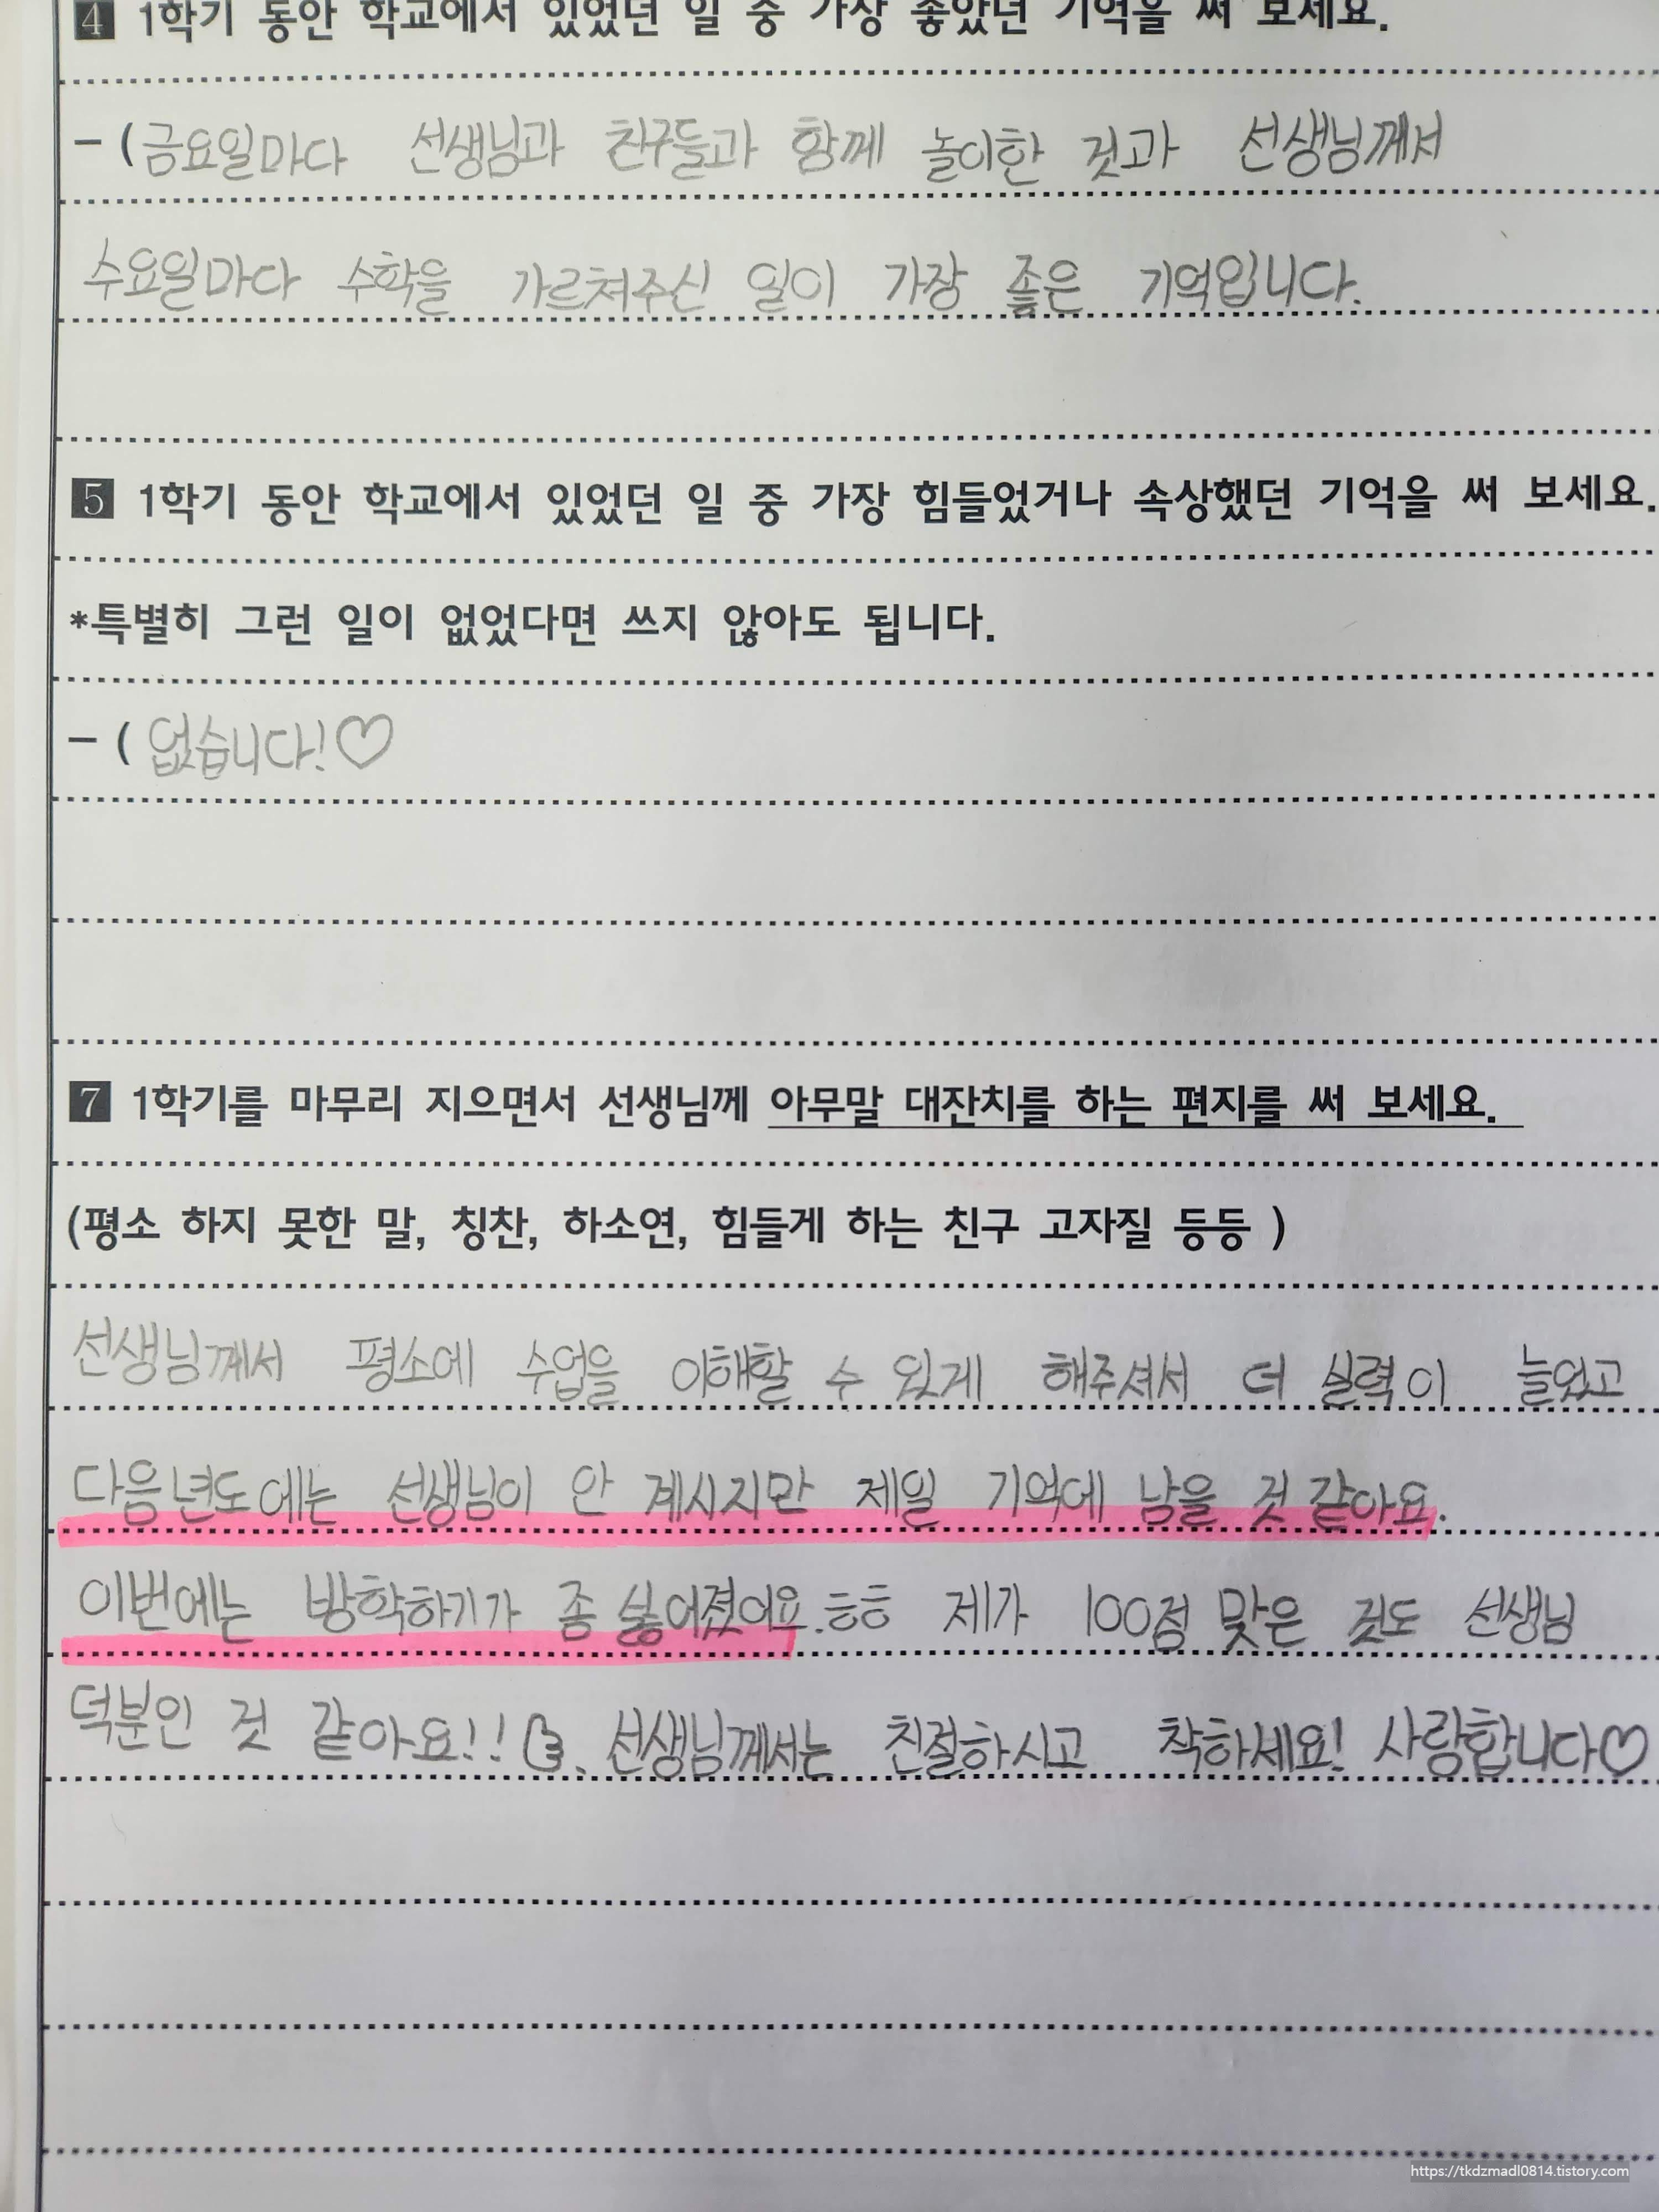 4 1학기 동안 학교에서 있었던 일 중 가장 좋았던 기억을 써 보세요.
- (금요일마다 선생님과 친구들과 함께 놀이한 것과 선생님께서
수요일마다 수학을 가르쳐주신 일이 가장 좋은 기억입니다.
5 1학기 동안 학교에서 있었던 일 중 가장 힘들었거나 속상했던 기억을 써 보세요.
*특별히 그런 일이 없었다면 쓰지 않아도 됩니다.
- ( 없습니다!♡
7 1학기를 마무리 지으면서 선생님께 아무말 대잔치를 하는 편지를 써 보세요.
(평소 하지 못한 말, 칭찬, 하소연, 힘들게 하는 친구 고자질 등등 )
선생님께서 평소에 수업을 이해할 수 있게 해주셔서 더 실력이 늘었고
다음년도에는 선생님이 안 계시지만 제일 기억에 남을 것 같아요.
이번에는 방학하기가 좀 싫어졌어요.ㅎㅎ 제가 100점 맞은 것도 선생님
덕분인 것 같아요!! 선생님께서는 친절하시고 착하세요! 사랑합니다♡
https://tkdzmadl0814.tistory.com